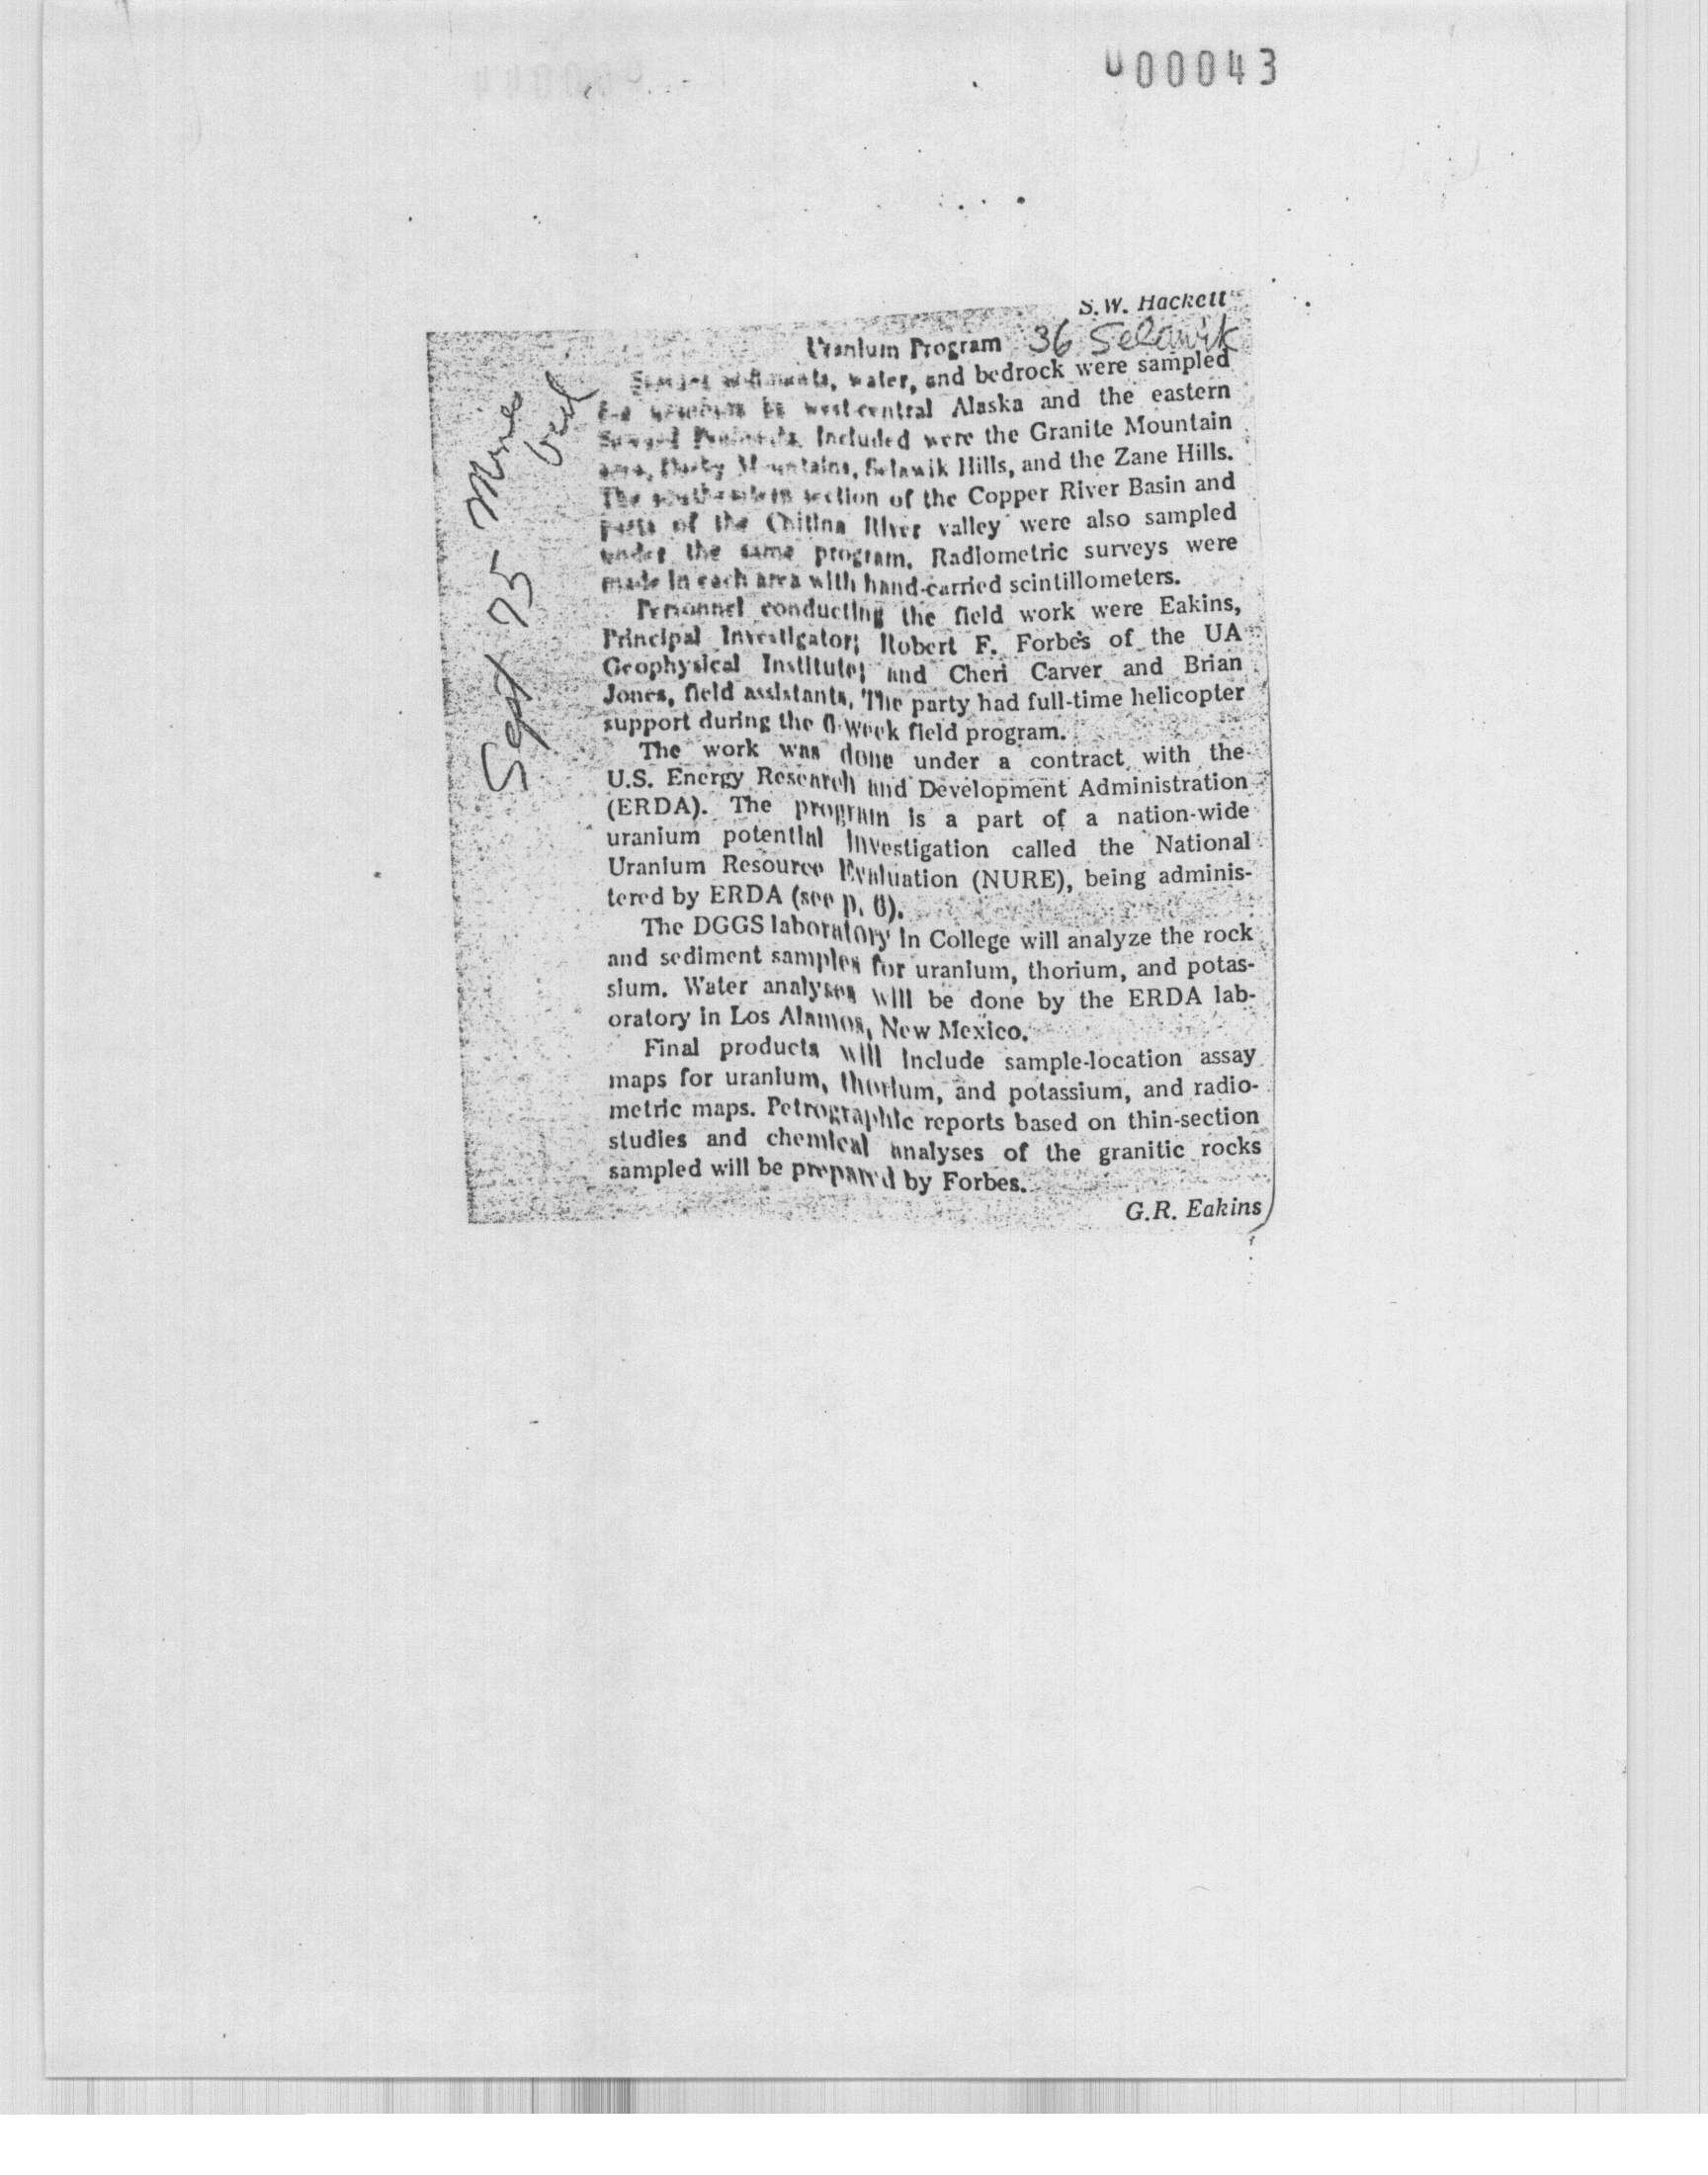 000043
S.W. Hackett
Uranium Program 36 Selawik
sediments, water, and bedrock were sampled
west-central Alaska and the eastern
Included were the Granite Mountain
Mountains, Selawik Hills, and the Zane Hills.
The section of the Copper River Basin and
parts of the Chitina River valley were also sampled
under the same program. Radiometric surveys were
made in each area with hand-carried scintillometers.
Personnel conducting the field work were Eakins,
Principal Investigator; Robert F. Forbes of the UA
Geophysical Institute; and Cheri Carver and Brian
Jones, field assistants. The party had full-time helicopter
support during the week field program.
The work was done under a contract with the
U.S. Energy Research and Development Administration
(ERDA). The program is a part of a nation-wide
uranium potential investigation called the National
Uranium Resource Evaluation (NURE), being adminis-
tered by ERDA (see p. 6).
The DGGS laboratory in College will analyze the rock
and sediment samples for uranium, thorium, and potas-
sium. Water analyses will be done by the ERDA lab-
oratory in Los Alamos, New Mexico.
Final products will include sample-location assay
maps for uranium, thorium, and potassium, and radio-
metric maps. Petrographic reports based on thin-section
studies and chemical analyses of the granitic rocks
sampled will be prepared by Forbes.
G.R. Eakins
Sept 75 Mines